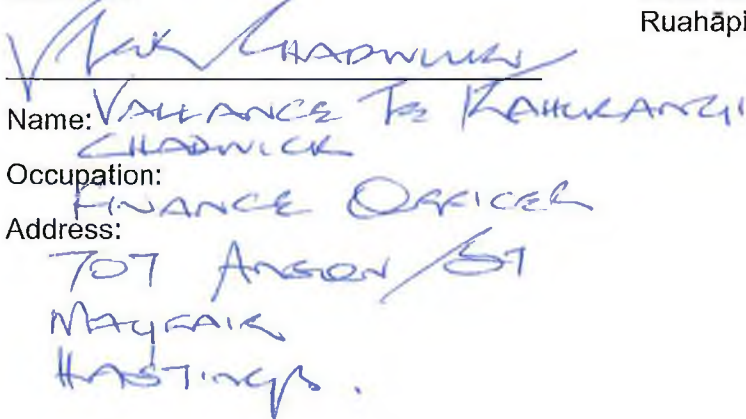 Ruahāpi
Chadwick
Name: Vallance Te Kahurangi
Chadwick
Occupation:
Finance Officer
Address:
707 St
Mayfair
Hastings.